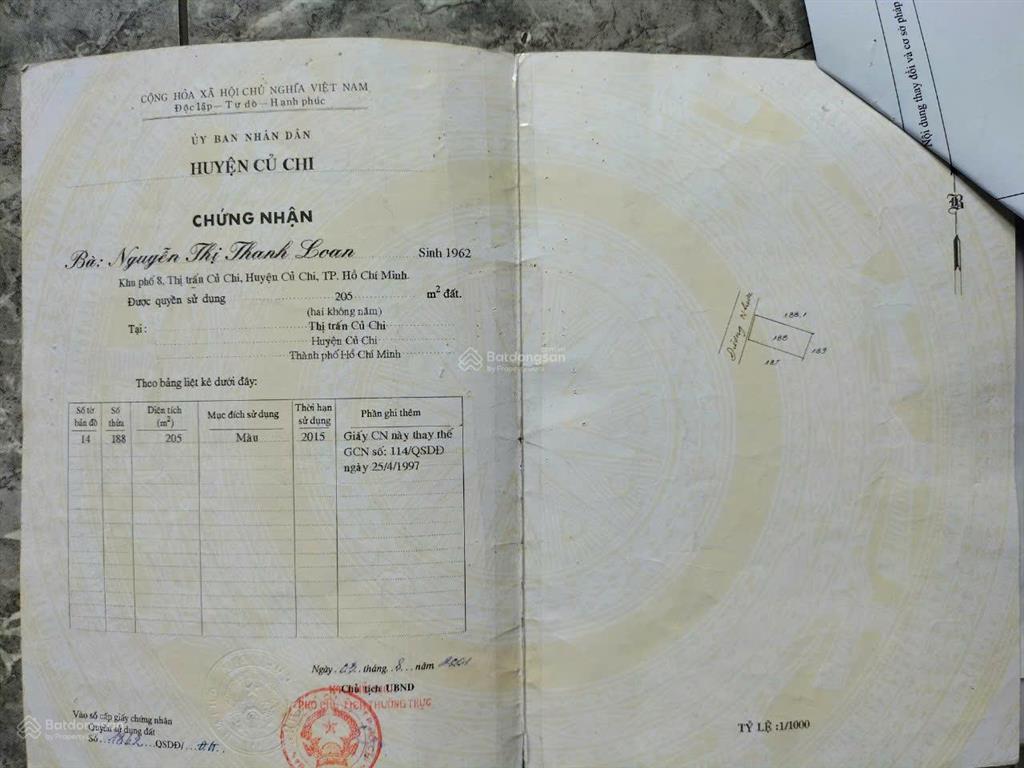 CỘNG HÒA XÃ HỘI CHỦ NGHĨA VIỆT NAM
Độc lập - Tự do - Hạnh phúc
ỦY BAN NHÂN DÂN
HUYỆN CỦ CHI
CHỨNG NHẬN
Bà: Nguyễn Thị Thanh Loan Sinh 1962
Khu phố 8, Thị trấn Củ Chi, Huyện Củ Chi, TP. Hồ Chí Minh
Được quyền sử dụng 205 m² đất.
(hai không năm)
Tại: Thị trấn Củ Chi
Huyện Củ Chi
Thành phố Hồ Chí Minh
Theo bảng liệt kê dưới đây:
Số tờ bản đồ Số thửa Diện tích (m²) Mục đích sử dụng Thời hạn sử dụng Phần ghi thêm
14 188 205 Màu 2015 Giấy CN này thay thế
GCN số: 114/QSDĐ
ngày 25/4/1997
Ngày 03 tháng 8 năm 2001
Chủ tịch UBND
PHÓ CHỦ TỊCH THƯỜNG TRỰC
Vào sổ cấp giấy chứng nhận
Quyền sử dụng đất
Số 1862 QSDĐ/
Nội dung thay đổi và cơ sở pháp
B
Đường Nhựa
188.1
188
189
187
TỶ LỆ :1/1000
Batdongsan
by PropertyGuru
Batdongsan
by PropertyGuru
Batdongsan